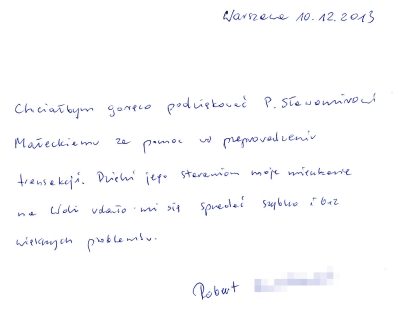 Warszawa 10.12.2013
Chciałbym gorąco podziękować P. Sławomirowi
Małeckiemu za pomoc w przeprowadzeniu
transakcji. Dzięki jego staraniom moje mieszkanie
na Woli udało mi się sprzedać szybko i bez
większych problemów.
Robert